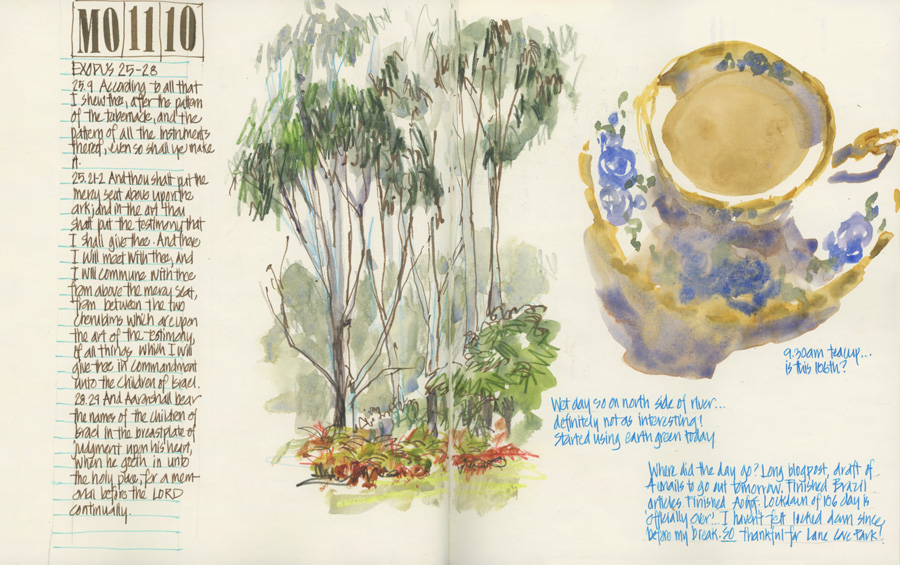 MO 11 10
EXODUS 25-28
25.9 According to all that
I shew thee, after the pattern
of the tabernacle, and the
pattern of all the instruments
thereof, even so shall ye make
it.
25.21-2 And thou shalt put the
mercy seat above upon the
ark; and in the ark thou
shalt put the testimony that
I shall give thee. And there
I will meet with thee, and
I will commune with thee
from above the mercy seat,
from between the two
cherubims which are upon
the ark of the testimony,
of all things which I will
give thee in commandment
unto the children of Israel.
28.29 And Aaron shall bear
the names of the children of
Israel in the breastplate of
judgment upon his heart,
when he goeth in unto
the holy place, for a mem
orial before the LORD
continually.
9.30am teacup...
is this 106th?
Wet day so on north side of river...
definitely not as interesting!
Started using earth green today
Where did the day go? Long blogpost, draft of
emails to go out tomorrow. Finished Brazil
articles. Finished Lockdown of 106 day is
officially over! I haven't felt locked down since
before my break. SO thankful for Lane Cove Park!